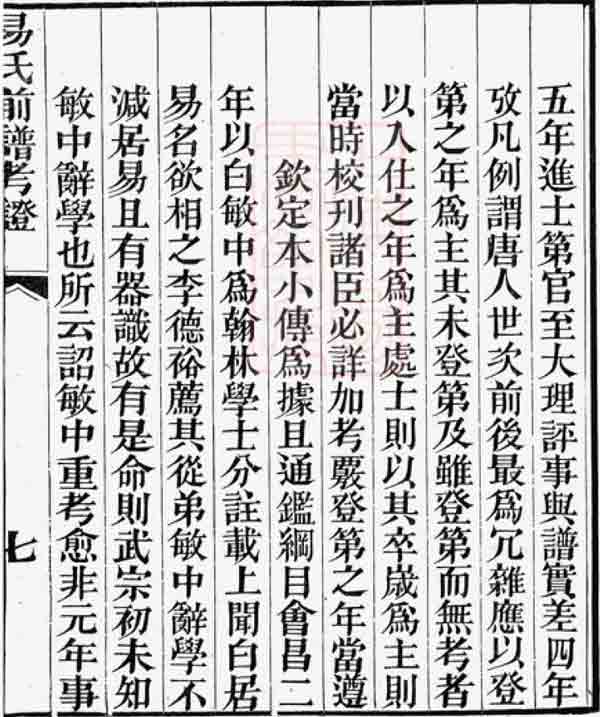 五年進士第官至大理評事與譜實差四年
攷凡例謂唐人世次前後最爲冗雜應以登
第之年爲主其未登第及雖登第而無考者
以入仕之年爲主處士則以其卒歲爲主則
當時校刊諸臣必詳加考覈登第之年當遵
欽定本小傳爲據且通鑑綱目會昌二
年以白敏中爲翰林學士分註載上聞白居
易名欲相之李德裕薦其從弟敏中辭學不
減居易且有器識故有是命則武宗初未知
敏中辭學也所云詔敏中重考愈非元年事
易氏前譜考證
七